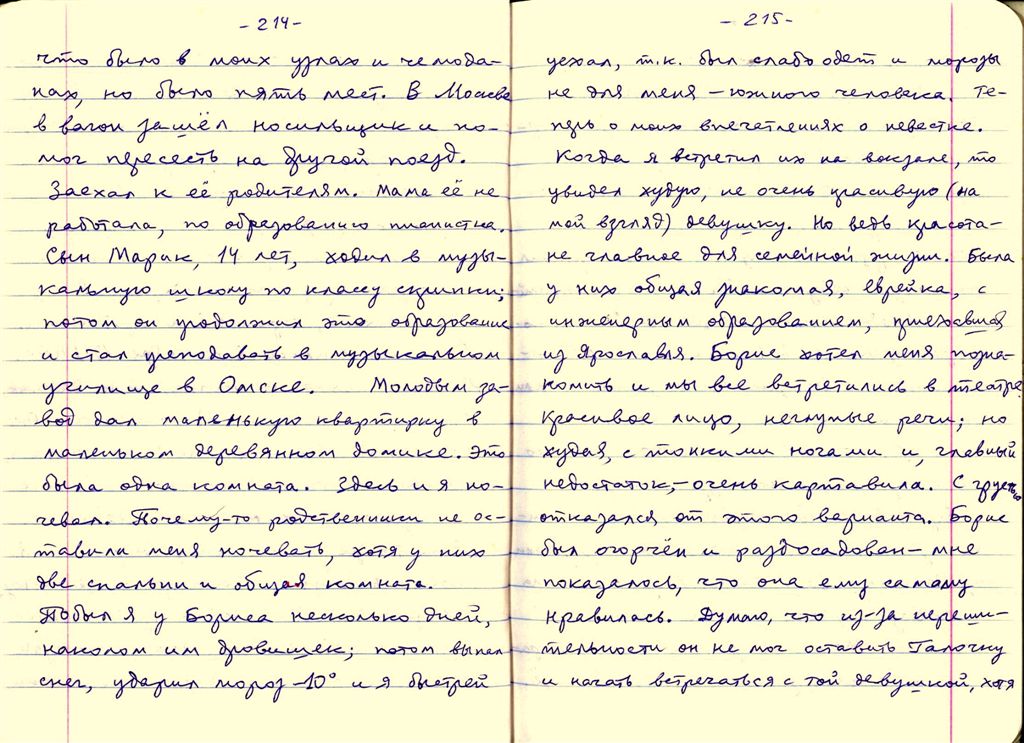 - 214 -
что было в моих узлах и чемода-
нах, но было пять мест. В Москве
в вагон зашёл носильщик и по-
мог пересесть на другой поезд.
Заехал к её родителям. Мама её не
работала, по образованию пианистка.
Сын Марик, 14 лет, ходил в музы-
кальную школу по классу скрипки;
потом он продолжил это образование
и стал преподавать в музыкальном
училище в Омске. Молодым за-
вод дал маленькую квартирку в
маленьком деревянном домике. Это
была одна комната. Здесь и я но-
чевал. Почему-то родственники не ос-
тавили меня ночевать, хотя у них
две спальни и общая комната.
Побыл я у Бориса несколько дней,
наколом им дровишек; потом выпал
снег, ударил мороз -10° и я быстрей
- 215 -
уехал, т.к. был слабо одет и морозы
не для меня — южного человека. Те-
перь о моих впечатлениях о невестке.
Когда я встретил их на вокзале, то
увидел худую, не очень красивую (на
мой взгляд) девушку. Но ведь красота -
не главное для семейной жизни. Была
у них общая знакомая, еврейка, с
инженерным образованием, приехавшая
из Ярославля. Борис хотел меня позна-
комить и мы все встретились в театре.
Красивое лицо, неглупые речи; но
худая, с тонкими ногами и, главный
недостаток, - очень картавила. С грустью
отказался от этого варианта. Борис
был огорчён и раздосадован — мне
показалось, что она ему самому
нравилась. Думаю, что из-за нереши-
тельности он не мог оставить Галочку
и начать встречаться с той девушкой, хотя